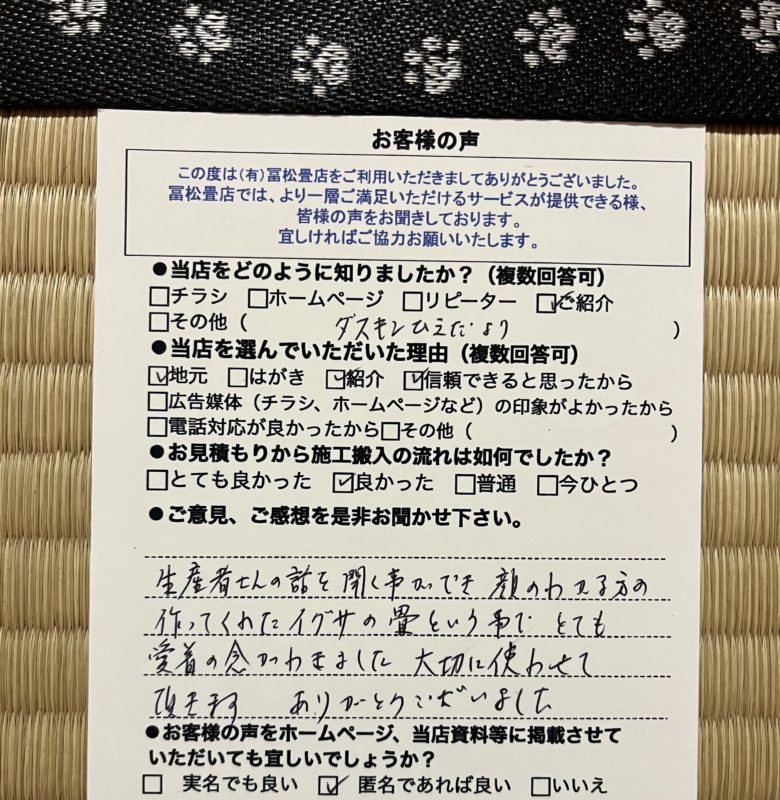 お客様の声
この度は(有)冨松畳店をご利用いただきましてありがとうございました。
冨松畳店では、より一層ご満足いただけるサービスが提供できる様、
皆様の声をお聞きしております。
宜しければご協力お願いいたします。
●当店をどのように知りましたか？（複数回答可）
□チラシ □ホームページ □リピーター ☑ご紹介
□その他（ ダスキンひえだより ）
●当店を選んでいただいた理由（複数回答可）
☑地元 □はがき ☑紹介 ☑信頼できると思ったから
□広告媒体（チラシ、ホームページなど）の印象がよかったから
□電話対応が良かったから□その他（ ）
●お見積もりから施工搬入の流れは如何でしたか？
□とても良かった ☑良かった □普通 □今ひとつ
●ご意見、ご感想を是非お聞かせ下さい。
生産者さんの話を聞く事ができ 顔のわかる方の
作ってくれたイグサの畳という事で とても
愛着の念がわきました 大切に使わせて
頂きます ありがとうございました
●お客様の声をホームページ、当店資料等に掲載させて
いただいても宜しいでしょうか？
□ 実名でも良い ☑ 匿名であれば良い □いいえ